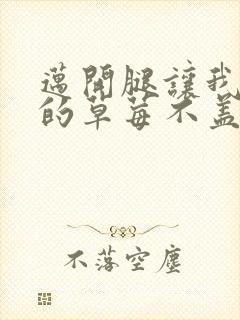 邁開腿讓我
的草莓不盖
不落空塵